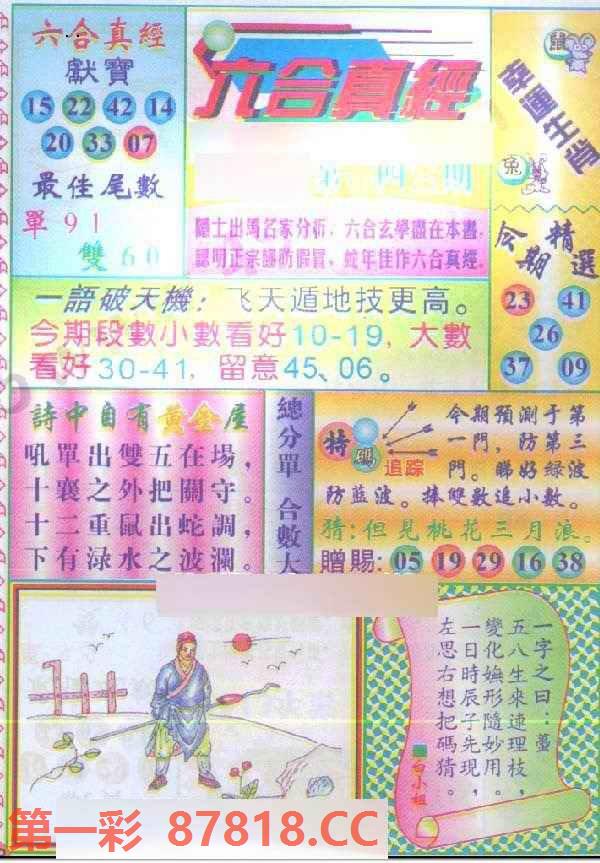 六合真經
獻寶
15 22 42 14
20 33 07
最佳尾數
單91
雙60
六合真經
隱士出馬名家分析，六合玄學盡在本書，
認明正宗謹防假冒，蛇年佳作六合真經。
鼠
幸運生肖
兔
今期精選
23 41
26
37 09
一語破天機：飞天遁地技更高。
今期段數小數看好10-19，大數
看好30-41，留意45、06。
詩中自有黄金屋
吼單出雙五在場，
十襄之外把關守。
十二重鼠出蛇調，
下有渌水之波瀾。
總分單 合數大
特碼
追踪
今期預測于第
一門，防第三
門。睇好绿波
防蓝波。捧雙數追小數。
猜：但見桃花三月浪。
贈賜：05 19 29 16 38
一字之曰：
五八生來連理枝，
變化嫵形隨妙用，
一日時辰子先現，
左思右想把碼猜。
白小姐
第一彩 87818.CC